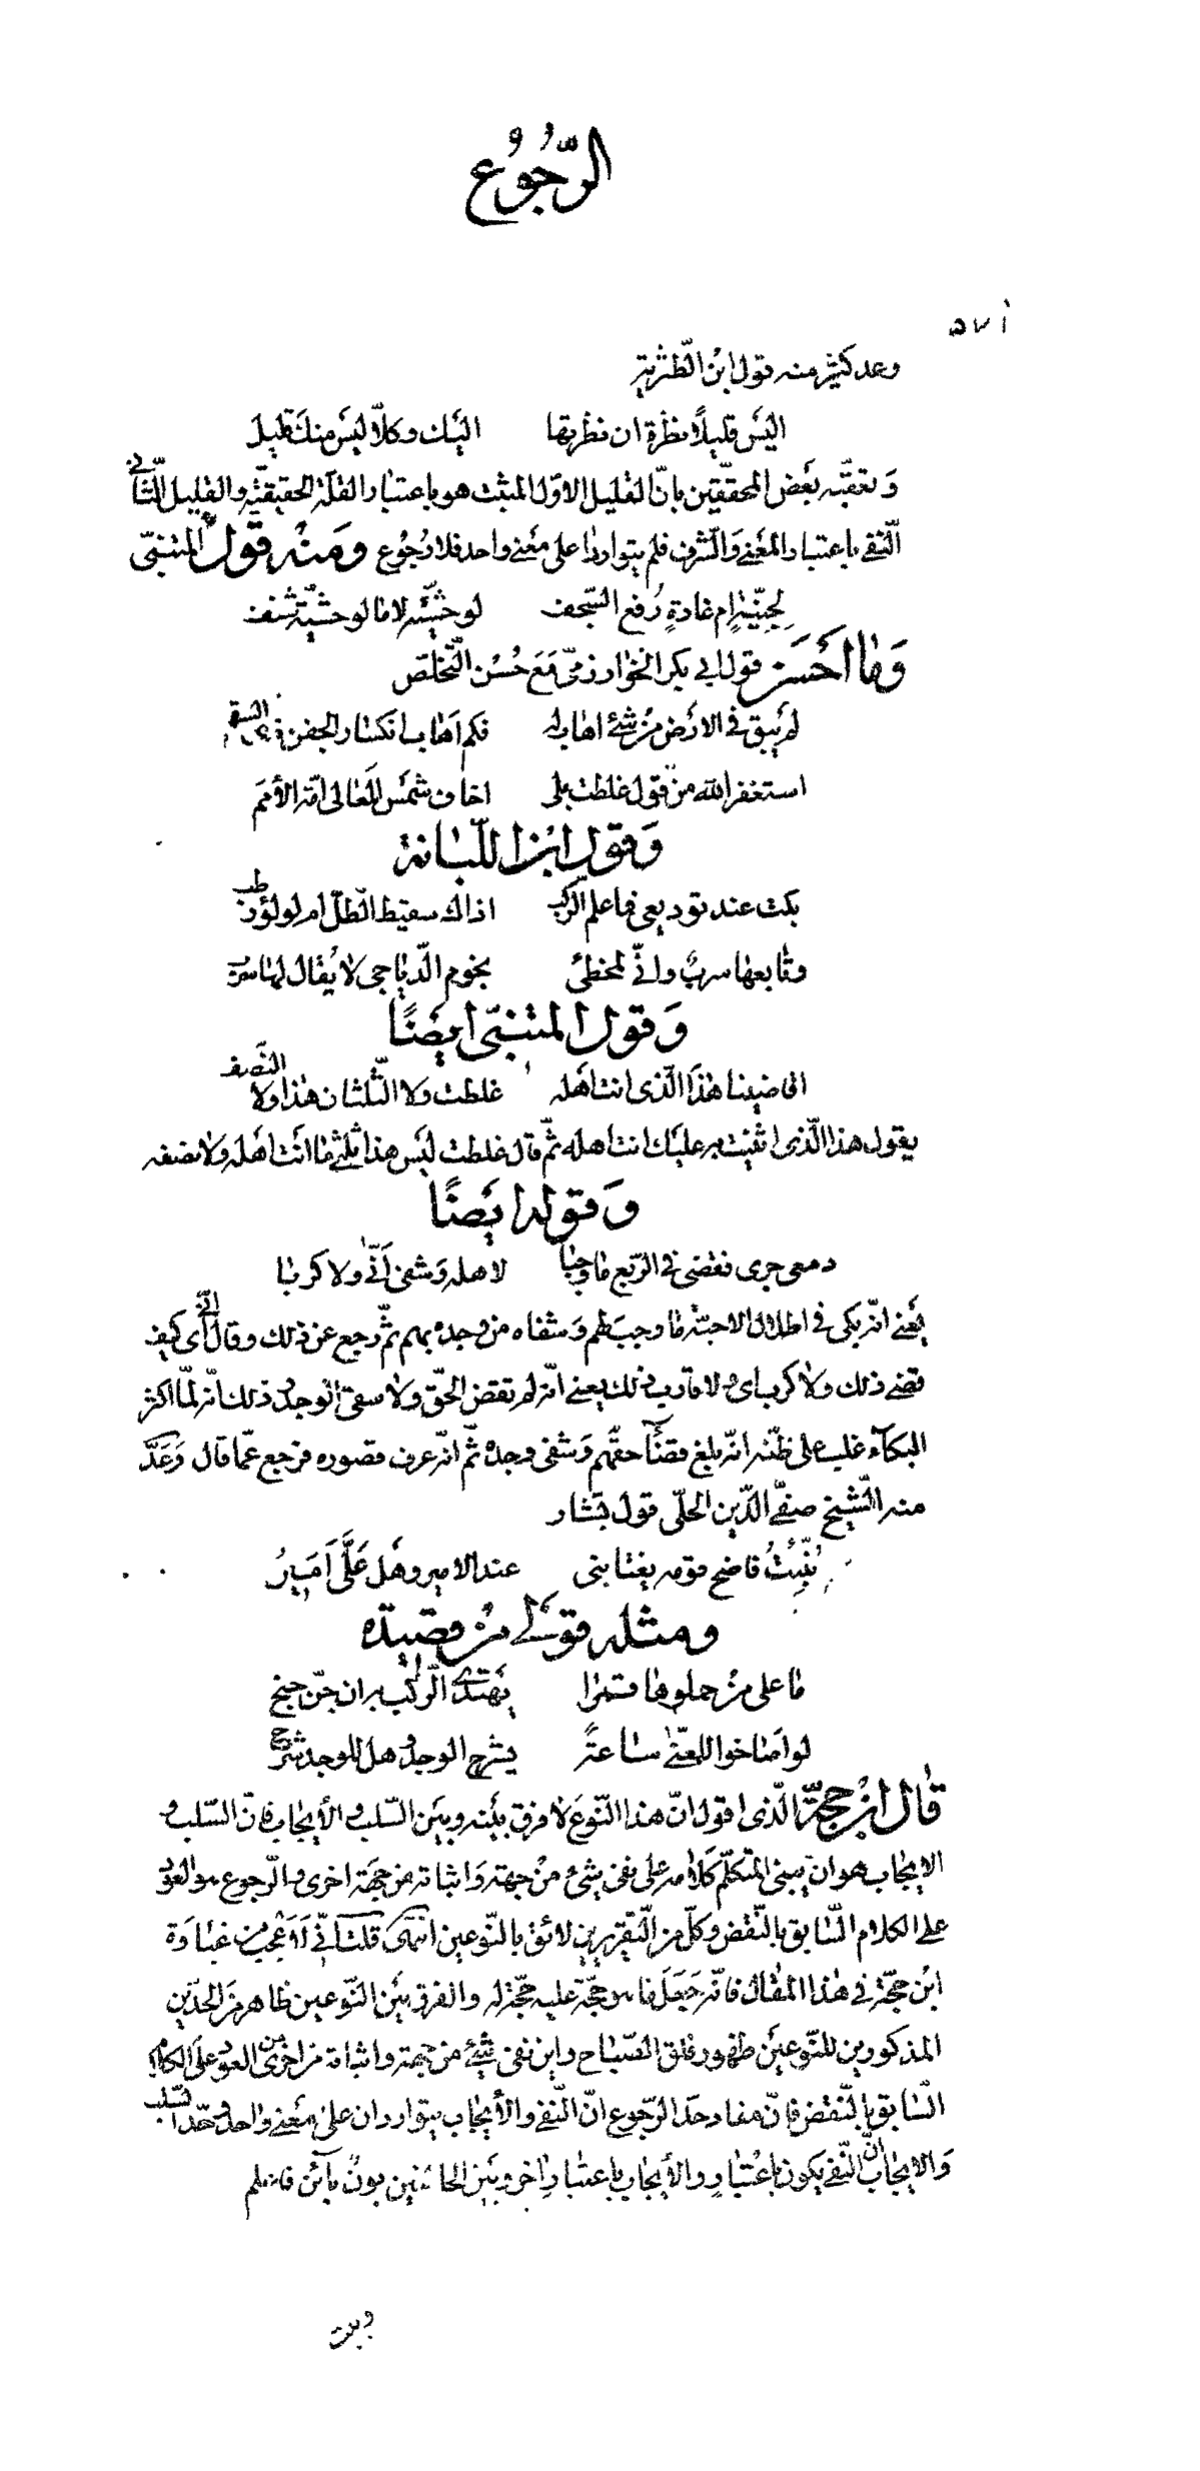 الرّجُوُع
٥٧١
وعد كثير منه قول ابن الطّثريّة
اليَس قليلًا نظرة ان نظرتها اليَك وكلّا ليَس منك قليل
وَتعقبّه بَعض المحقّقين بانّ القليل الاوّل المثبت هو باعتبار القلّة الحقيقيّة والقليل الثّاني
النّفى باعتبار المعَنى وَالشّرف فلم يتواردا على معَنى واحد فلا رُجُوع ومَنه قَول المتنبّى
لِجنيّةٍ ام غادةٍ رُفع السّجف لوحشيّة لا ما لوحشيّة شنف
وَمٰا اَحَسَن قول ابي بكر الخوارزميّ مَعَ حُسُن التّخلّص
لم يَبق في الارَض مِن شئ اهابه فكم اَهاب انكسار الجفن ذي السقم
استغفر الله من قول غلطت بلى اخاف شمس المعَالى امّة الأمَم
وَقول ابن اللّبانة
بكت عند توديعى فما علم الركب اذاك سقيط الطّل ام لولؤ رطب
وتابعها سرب وانّى لمخطئ نجوم الدّياجى لا يُقال لها سرب
وَقول المتنبّى ايضًا
افاضينا هٰذا الّذى انت اهَله غلطت وَلا الثّلثان هٰذا ولا النّصف
يقول هذا الّذى اثنيت به عليك انت اهله ثمّ قال غلطت ليَس هذا ثلثى ما انت اهَله وَلا نصفه
وَقوله ايَضًا
دمعى جرى فقضى في الرّبع ما وجبا لاهله وَشفى انّى ولا كربا
يَعنى انّه بكى في اطلال الاحبّة ما وجب لهم وَشفاه من وجده بهم ثمّ رجع عن ذلك وقال انّى اى كيف
قضى ذلك ولا كرب اى ولا قارب ذلك يعنى انّه لم يقض الحقّ ولا شفى الوجد وذلك انّه لمّا اكثر
البكآء غلب على ظنّه انّه بلغ قضآء حقّهم وَشفى وجده ثمّ انّه عرف قصوره فرجع عمّا قال وَعَدّ
منه الشّيخ صفىّ الدّين الحلّى قول بشّار
نُبّئتُ فاضح قومه يغتابنى عند الامير وهَل عَلَّى اَمَيرُ
ومثله قولى مِن قصيدة
ما على مِن حملوها قمرا يَهتدى الرّكب به ان جنّ جنح
لو اصَاخوا للمعَنّى ساعةً يشرح الوجد وهل للوجد شرح
قال ابن حجّة الّذى اقول انّ هذا النّوعَ لا فرق بيَنه وبيَن السّلب والأيجاب فانّ السّلب و
الايجاب هو ان يبنى المتكلّم كلامه على نفى شئ مِن جهة وَاثباته من جهَة اخرى والرّجوع هو العود
على الكلام السّابق بالنّقض وكلّ من التّقريرين لائق بالنّوعين انتهى قلت انّي لاعَجب من غباوَة
ابن حجّة في هٰذا المقال فانّه جَعَل ما هو حجّة عليه حجّة له والفرق بين النّوعين ظاهر من الحدّين
المذكورين للنّوعيَن ظهور فلق الصّباح واين نفى شئ من جهة واثباته من اخرى من العود على الكلام
السّابق بالنّقض فانّ مفاد حدّ الرّجوع انّ النّفى والأيجاب يتواردان على معنى واحد وحدّ السّلب
وَالايجاب انّ النّفى يكون باعتبارٍ والأيجاب باعتبارٍ اخر وبين الحالتين بونٌ بآئن فاعلم
وبيت